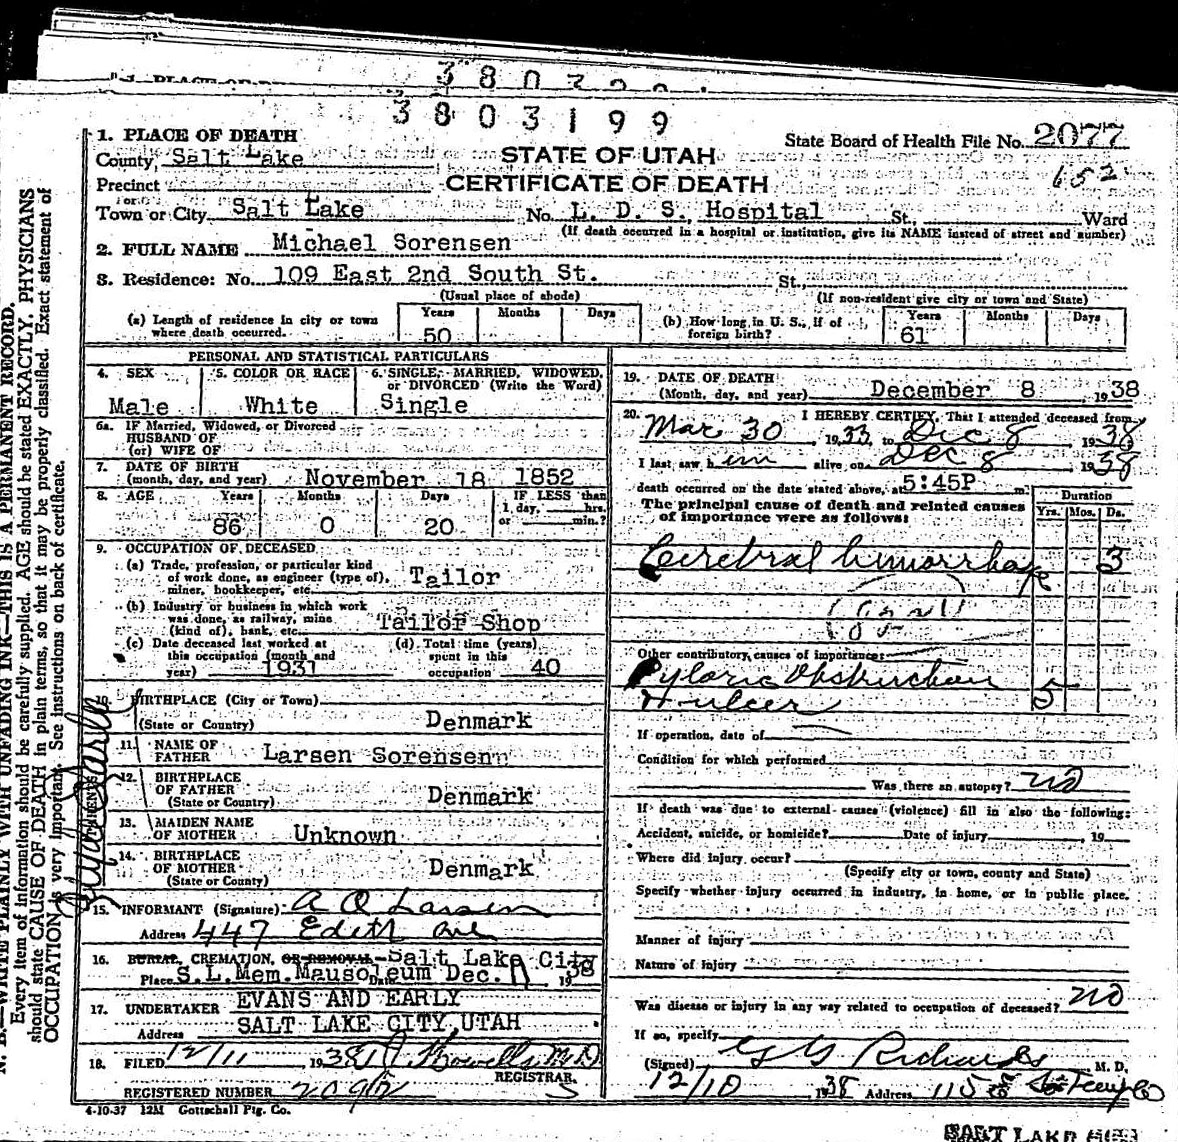 3803199
1. PLACE OF DEATH
State Board of Health File No. 2077
652
County, Salt Lake
STATE OF UTAH
CERTIFICATE OF DEATH
Precinct
or
Town or City Salt Lake No. L. D. S. Hospital St., Ward
(If death occurred in a hospital or institution, give its NAME instead of street and number)
2. FULL NAME Michael Sorensen
3. Residence: No. 109 East 2nd South St. St.,
(Usual place of abode) (If non-resident give city or town and State)
(a) Length of residence in city or town where death occurred. Years 50 Months Days
(b) How long in U. S., if of foreign birth? Years 61 Months Days
PERSONAL AND STATISTICAL PARTICULARS
4. SEX Male
5. COLOR OR RACE White
6. SINGLE, MARRIED, WIDOWED, or DIVORCED (Write the Word) Single
6a. IF Married, Widowed, or Divorced
HUSBAND OF
(or) WIFE OF
7. DATE OF BIRTH
(month, day, and year) November 18 1852
8. AGE Years 86 Months 0 Days 20 IF LESS than 1 day, hrs. or min.?
9. OCCUPATION OF DECEASED
(a) Trade, profession, or particular kind of work done, as engineer (type of), miner, bookkeeper, etc. Tailor
(b) Industry or business in which work was done, as railway, mine (kind of), bank, etc. Tailor Shop
(c) Date deceased last worked at this occupation (month and year) 1931
(d) Total time (years) spent in this occupation 40
10. BIRTHPLACE (City or Town)
(State or Country) Denmark
11. NAME OF FATHER Larsen Sorensen
12. BIRTHPLACE OF FATHER
(State or Country) Denmark
13. MAIDEN NAME OF MOTHER Unknown
14. BIRTHPLACE OF MOTHER
(State or County) Denmark
15. INFORMANT (Signature) A O Larsen
Address 447 Edith Ave
16. BURIAL, CREMATION, OR REMOVAL Salt Lake City
Place S.L.Mem.Mausoleum Date Dec. 11 1938
17. UNDERTAKER EVANS AND EARLY
Address SALT LAKE CITY, UTAH
18. FILED 12/11 1938 M.D.
REGISTRAR.
REGISTERED NUMBER 2092
4-10-37 12M Gottschall Ptg. Co.
19. DATE OF DEATH
(Month, day, and year) December 8 1938
20. I HEREBY CERTIFY, That I attended deceased from
Mar 30, 1933, to Dec 8 1938
I last saw him alive on Dec 8 1938
death occurred on the date stated above, at 5:45P m.
The principal cause of death and related causes of importance were as follows:
Duration
Yrs. Mos. Ds.
Cerebral hemorrhage 3
Other contributory causes of importance:
Pyloric Obstruction 5
ulcer
If operation, date of
Condition for which performed
Was there an autopsy? no
If death was due to external causes (violence) fill in also the following:
Accident, suicide, or homicide? Date of injury 19
Where did injury occur?
(Specify city or town, county and State)
Specify whether injury occurred in industry, in home, or in public place.
Manner of injury
Nature of injury
Was disease or injury in any way related to occupation of deceased? no
If so, specify
(Signed) G G Richards M. D.
12/10 1938 Address 115 So Temple
N. B.—WRITE PLAINLY WITH UNFADING INK—THIS IS A PERMANENT RECORD.
Every item of information should be carefully supplied. AGE should be stated EXACTLY. PHYSICIANS
should state CAUSE OF DEATH in plain terms, so that it may be properly classified. Exact statement of
OCCUPATION is very important. See instructions on back of certificate.